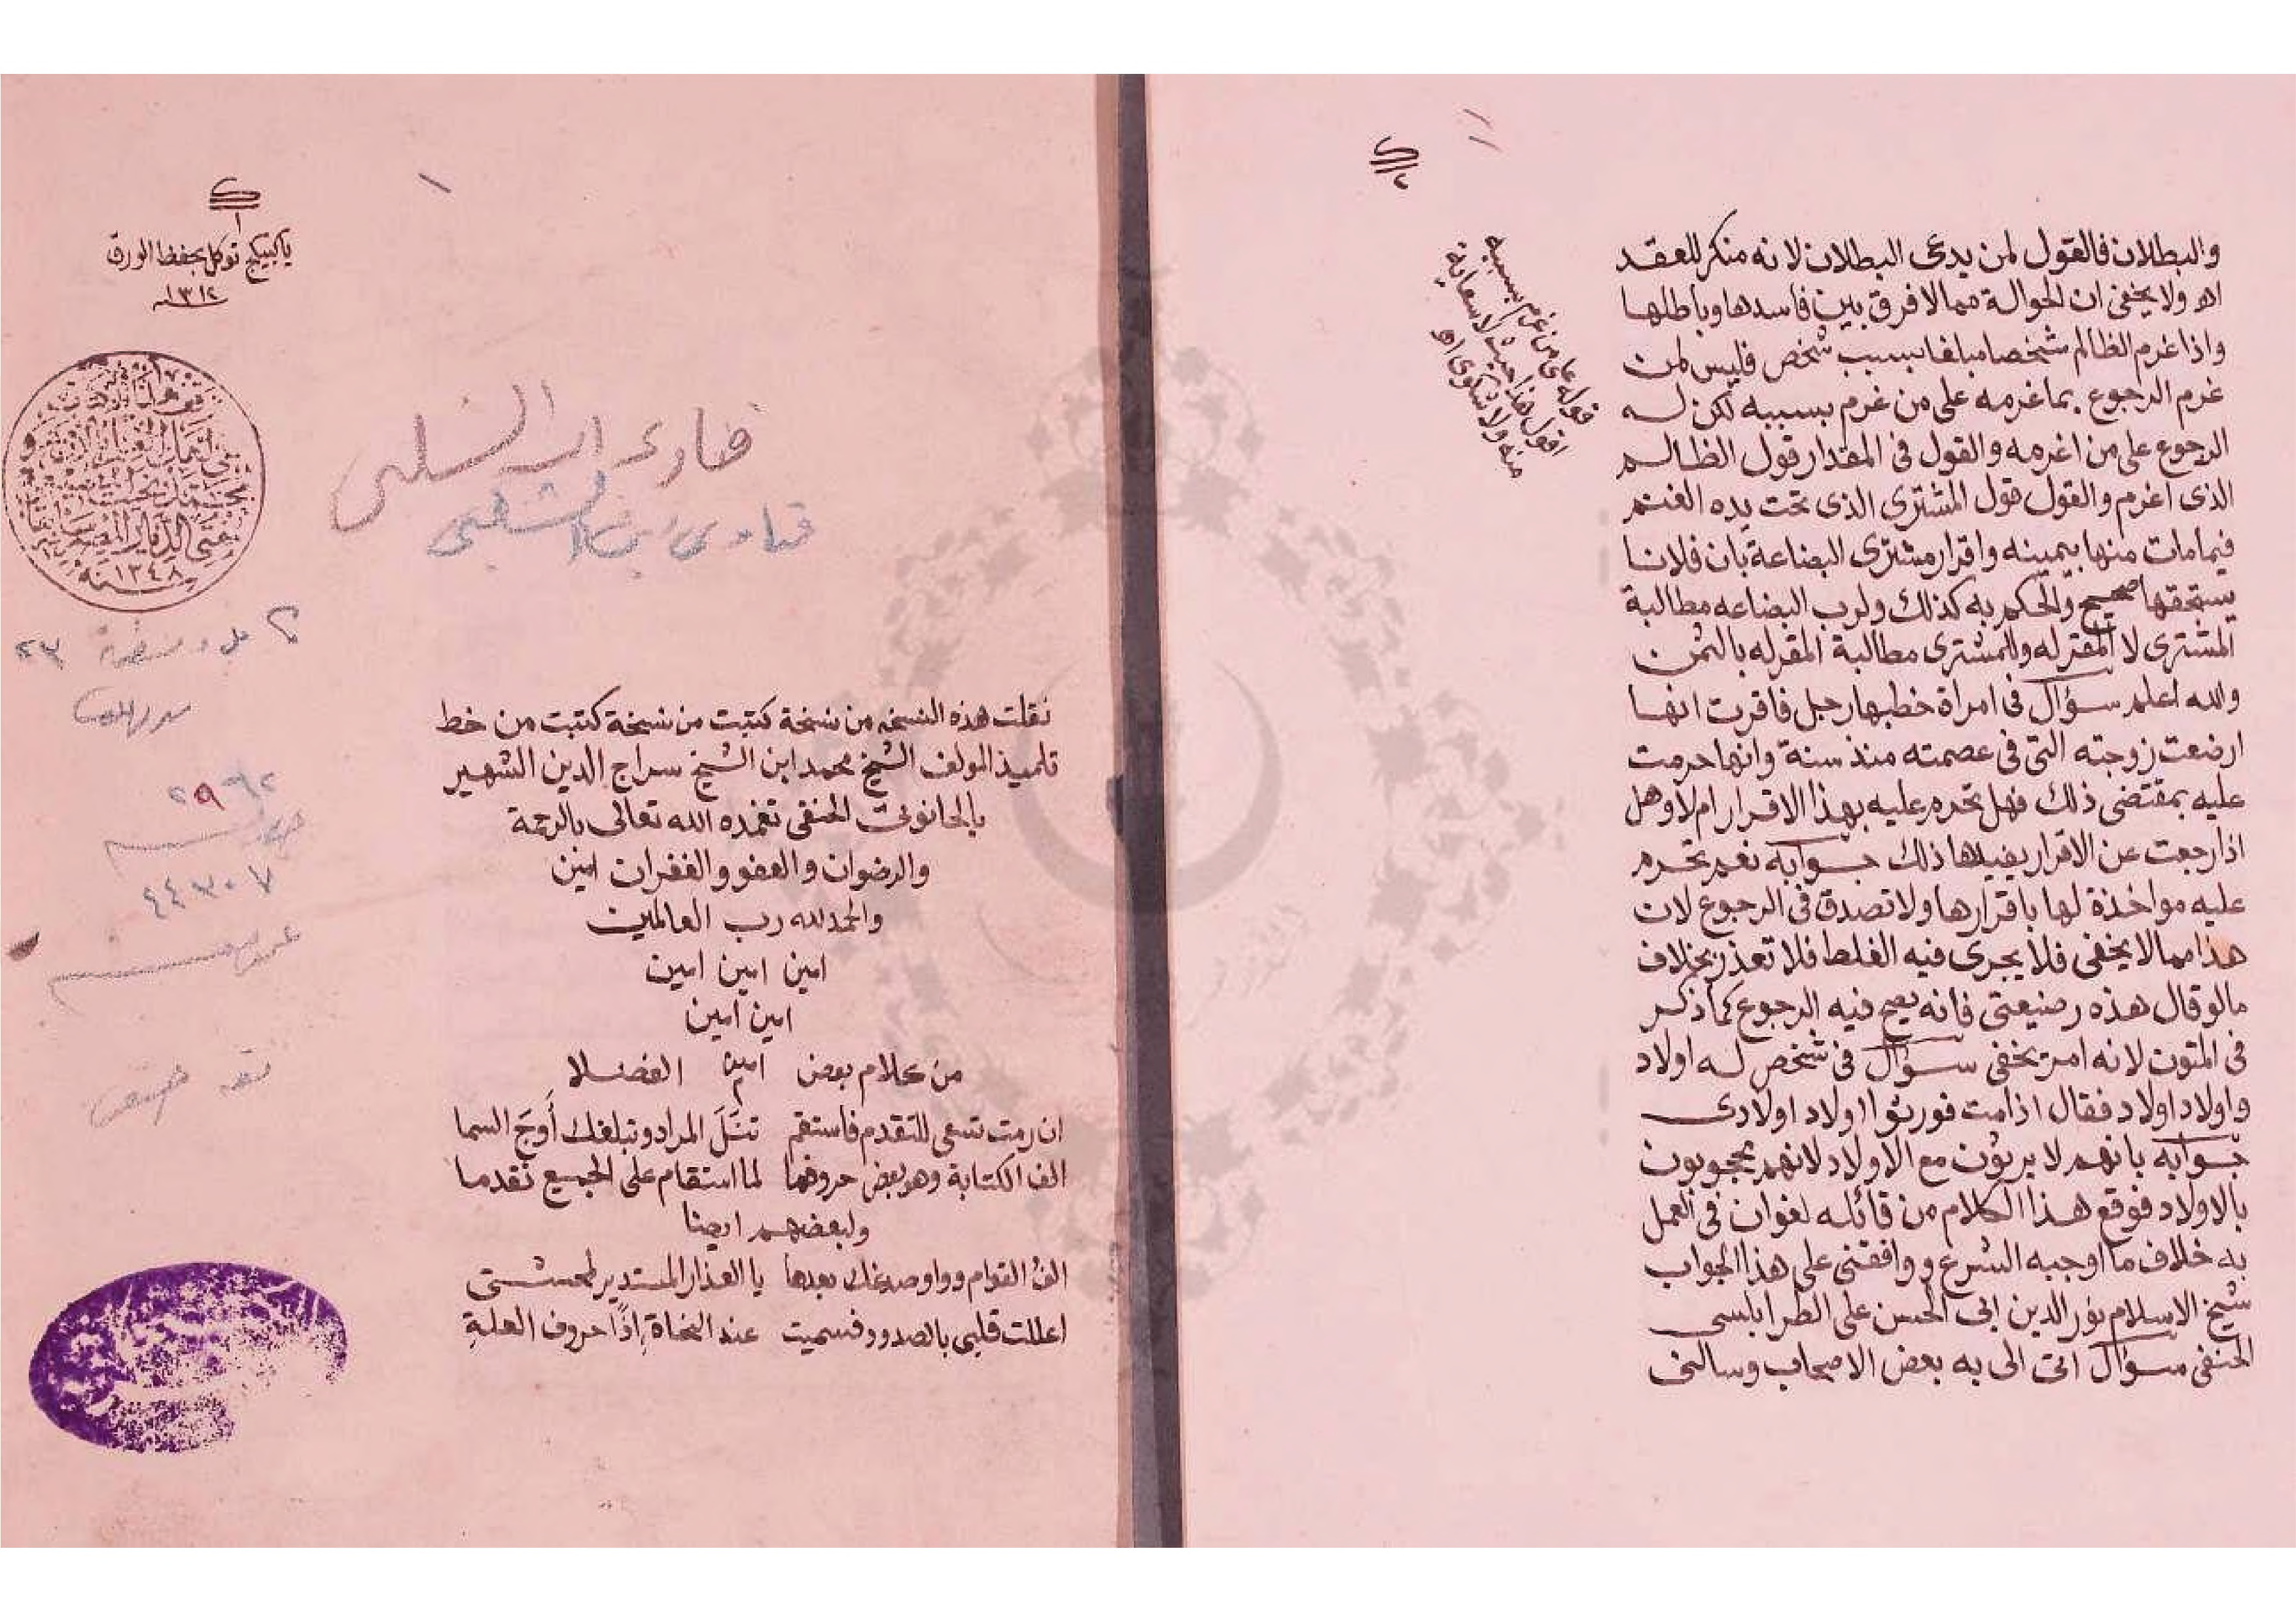 والبطلان فالقول لمن يدعى البطلان لانه منكر للعقد
اه ولا يخفى ان الحوالة مما لا فرق بين فاسدها وباطلها
واذا غرم الظالم شخصا مبلغا بسبب شخص فليس لمن
غرم الرجوع بما غرمه على من غرم بسببه لكن له
الرجوع على من اغرمه والقول فى المقدار قول الظالم
الذى اغرم والقول قول المشترى الذى تحت يده الغنم
فيما مات منها بيمينه واقرار مشترى البضاعة بان فلانا
يستحقها صحيح والحكم به كذلك ولرب البضاعه مطالبة
المشترى لا المقر له وللمشترى مطالبة المقر له بالثمن
والله اعلم سؤال فى امراة خطبها رجل فاقرت انها
ارضعت زوجته التى فى عصمته منذ سنة وانها حرمت
عليه بمقتضى ذلك فهل تحرم عليه بهذا الاقرار ام لا وهل
اذا رجعت عن الاقرار يفيدها ذلك جوابه نعم تحرم
عليه مواخذة لها باقرارها ولا تصدق فى الرجوع لان
هذا مما لا يخفى فلا يجرى فيه الغلط فلا تعذر بخلاف
ما لو قال هذه رضيعتى فانه يصح فيه الرجوع كما ذكر
فى المتون لانه امر يخفى سؤال فى شخص له اولاد
واولاد اولاد فقال اذا مت فورثوا اولاد اولادى
جوابه بانهم لا يرثون مع الاولاد لانهم محجوبون
بالاولاد فوقع هذا الكلام من قائله لغوان فى العمل
به خلاف ما اوجبه الشرع ووافقنى على هذا الجواب
شيخ الاسلام نور الدين ابى الحسن على الطرابلسى
الحنفى سؤال اتى الى به بعض الاصحاب وسالنى
قوله على من غرم بسببه
اقول هذا حيث لا سعاية
منه ولا شكوى اه
ياكبيكج توكل بحفظ الورق
١٣١٢
فتاوى ابن الشلبى
فتاوى ابن الشلبى
١٣٤٨
٤٤٣٠٧
نقلت هذه النسخه من نسخة كتبت من نسخة كتبت من خط
تلميذ المولف الشيخ محمد ابن الشيخ سراج الدين الشهير
بالحانوتى الحنفى تغمده الله تعالى بالرحمة
والرضوان والعفو والغفران امين
والحمد لله رب العالمين
امين امين امين
امين امين
من كلام بعض امين الفضلا
ان رمت تسعى للتقدم فاستقم تنل المراد وتبلغك أوج السما
الف الكتابة وهو بعض حروفها لما استقام على الجميع تقدما
ولبعضهم ايضا
الف القوام وواو صدغك بعدها يا العذار المستدير لمحنتى
اعللت قلبى بالصدود فسميت عند النحاة إذًا حروف العلةِ